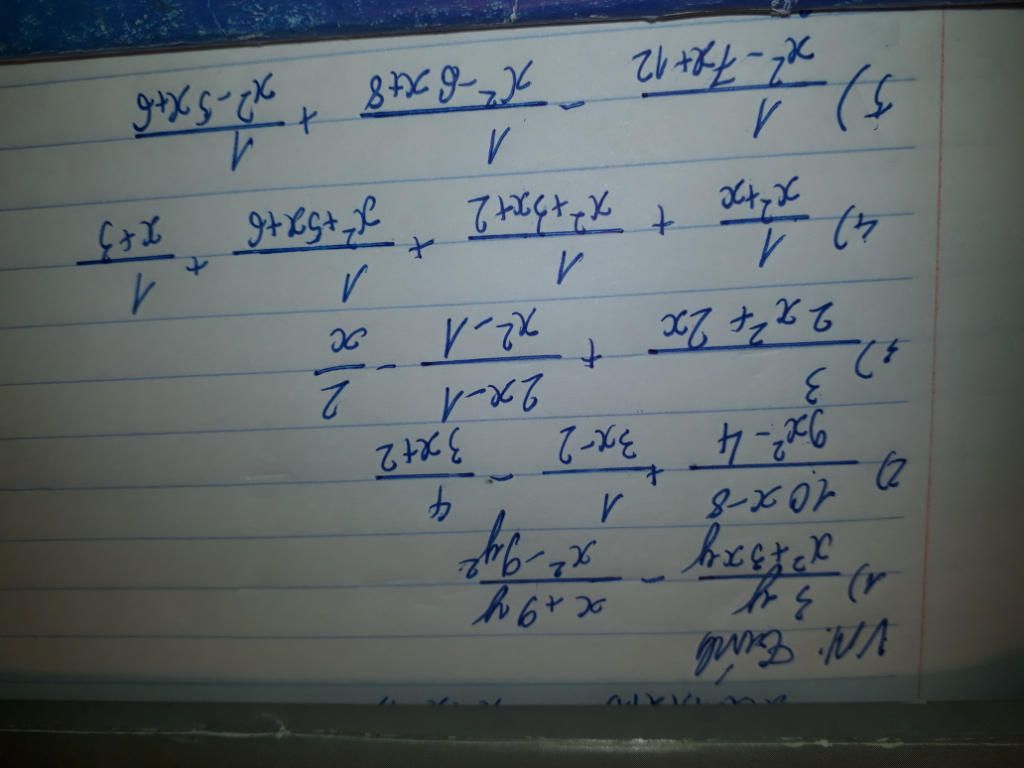 VN: Tính
1) 3y/(x²+3xy) - (x+9y)/(x²-9y²)
2) (10x-8)/(9x²-4) + 1/(3x-2) - 4/(3x+2)
3) 3/(2x²+2x) + (2x-1)/(x²-1) - 2/x
4) 1/(x²+x) + 1/(x²+3x+2) + 1/(x²+5x+6) + 1/(x+3)
5) 1/(x²-7x+12) - 1/(x²-6x+8) + 1/(x²-5x+6)